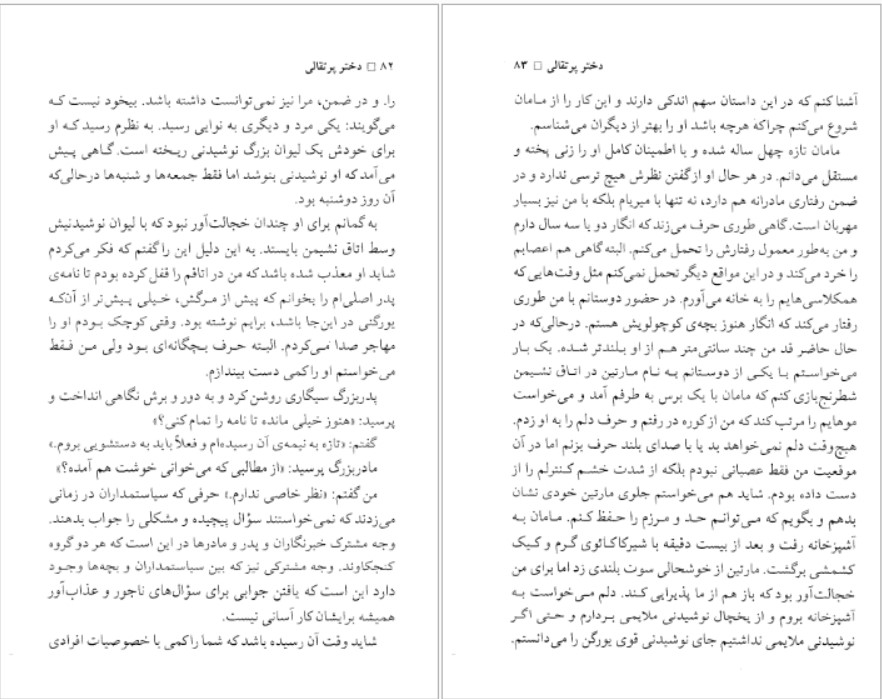 ۸۲ □ دختر پرتقالی
را. و در ضمن، مرا نیز نمی‌توانست داشته باشد. بیخود نیست که
می‌گویند: یکی مرد و دیگری به نوایی رسید. به نظرم رسید که او
برای خودش یک لیوان بزرگ نوشیدنی ریخته است. گاهی پیش
می‌آمد که او نوشیدنی بنوشد اما فقط جمعه‌ها و شنبه‌ها درحالی‌که
آن روز دوشنبه بود.
به گمانم برای او چندان خجالت‌آور نبود که با لیوان نوشیدنیش
وسط اتاق نشیمن بایستد. به این دلیل این را گفتم که فکر می‌کردم
شاید او معذب شده باشد که من در اتاقم را قفل کرده بودم تا نامه‌ی
پدر اصلی‌ام را بخوانم که پیش از مرگش، خیلی پیش‌تر از آن‌که
یورگنی در این‌جا باشد، برایم نوشته بود. وقتی کوچک بودم او را
مهاجر صدا می‌کردم. البته حرف بچگانه‌ای بود ولی من فقط
می‌خواستم او را کمی دست بیندازم.
پدربزرگ سیگاری روشن کرد و به دور و برش نگاهی انداخت و
پرسید: «هنوز خیلی مانده تا نامه را تمام کنی؟»
گفتم: «تازه به نیمه‌ی آن رسیده‌ام و فعلاً باید به دستشویی بروم.»
مادربزرگ پرسید: «از مطالبی که می‌خوانی خوشت هم آمده؟»
من گفتم: «نظر خاصی ندارم.» حرفی که سیاستمداران در زمانی
می‌زدند که نمی‌خواستند سؤال پیچیده و مشکلی را جواب بدهند.
وجه مشترک خبرنگاران و پدر و مادرها در این است که هر دو گروه
کنجکاوند. وجه مشترکی نیز که بین سیاستمداران و بچه‌ها وجود
دارد این است که یافتن جوابی برای سؤال‌های ناجور و عذاب‌آور
همیشه برایشان کار آسانی نیست.
شاید وقت آن رسیده باشد که شما را کمی با خصوصیات افرادی
دختر پرتقالی □ ۸۳
آشنا کنم که در این داستان سهم اندکی دارند و این کار را از مامان
شروع می‌کنم چراکه هرچه باشد او را بهتر از دیگران می‌شناسم.
مامان تازه چهل ساله شده و با اطمینان کامل او را زنی پخته و
مستقل می‌دانم. در هر حال او از گفتن نظرش هیچ ترسی ندارد و در
ضمن رفتاری مادرانه هم دارد، نه تنها با میریام بلکه با من نیز بسیار
مهربان است. گاهی طوری حرف می‌زند که انگار دو یا سه سال دارم
و من به‌طور معمول رفتارش را تحمل می‌کنم. البته گاهی هم اعصابم
را خرد می‌کند و در این مواقع دیگر تحمل نمی‌کنم مثل وقت‌هایی که
همکلاسی‌هایم را به خانه می‌آورم. در حضور دوستانم با من طوری
رفتار می‌کند که انگار هنوز بچه‌ی کوچولویش هستم. درحالی‌که در
حال حاضر قد من چند سانتی‌متر هم از او بلندتر شده. یک بار
می‌خواستم با یکی از دوستانم به نام مارتین در اتاق نشیمن
شطرنج‌بازی کنم که مامان با یک برس به طرفم آمد و می‌خواست
موهایم را مرتب کند که من از کوره در رفتم و حرف دلم را به او زدم.
هیچ‌وقت دلم نمی‌خواهد بد یا با صدای بلند حرف بزنم اما در آن
موقعیت من فقط عصبانی نبودم بلکه از شدت خشم کنترلم را از
دست داده بودم. شاید هم می‌خواستم جلوی مارتین خودی نشان
بدهم و بگویم که می‌توانم حد و مرزم را حفظ کنم. مامان به
آشپزخانه رفت و بعد از بیست دقیقه با شیرکاکائوی گرم و کیک
کشمشی برگشت. مارتین از خوشحالی سوت بلندی زد اما برای من
خجالت‌آور بود که باز هم از ما پذیرایی کند. دلم می‌خواست به
آشپزخانه بروم و از یخچال نوشیدنی ملایمی بردارم و حتی اگر
نوشیدنی ملایمی نداشتیم جای نوشیدنی قوی یورگن را می‌دانستم.